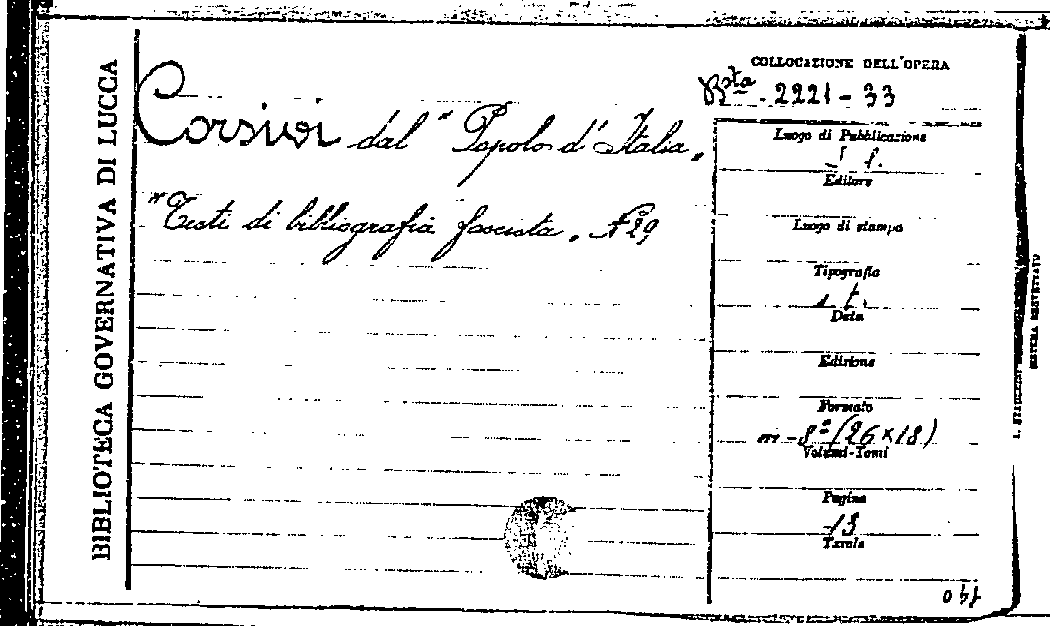 BIBLIOTECA GOVERNATIVA DI LUCCA
Corsivi dal "Popolo d'Italia"
"Testi di bibliografia fascista" N° 29
COLLOCAZIONE DELL'OPERA
Bsta. 2221-33
Luogo di Pubblicazione
s. l.
Editore
Luogo di stampa
Tipografia
s. t.
Data
Edizione
Formato
in-8° (26×18)
Volumi-Tomi
Pagine
13
Tavole